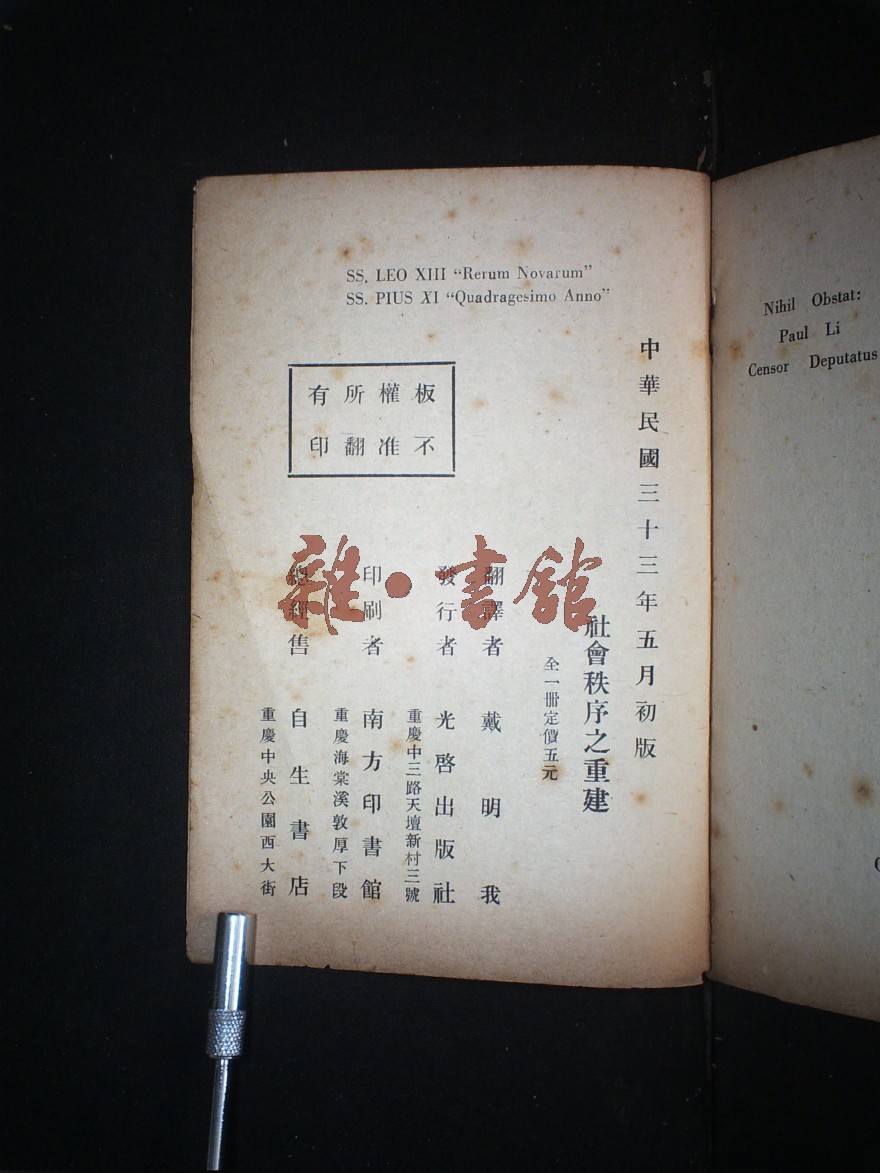 SS. LEO XIII “Rerum Novarum”
SS. PIUS XI “Quadragesimo Anno”
中華民國三十三年五月初版
社會秩序之重建
全一冊定價五元
翻譯者 戴明我
發行者 光啓出版社
重慶中三路天壇新村三號
印刷者 南方印書館
重慶海棠溪敦厚下段
總經售 自生書店
重慶中央公園西大街
板權所有
不准翻印
雜·書館
Nihil Obstat:
Paul Li
Censor Deputatus